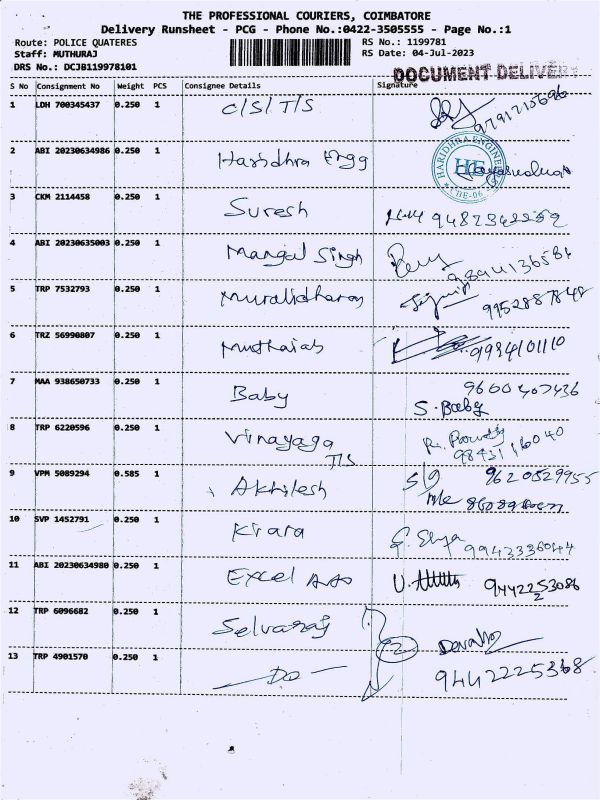 THE PROFESSIONAL COURIERS, COIMBATORE
Delivery Runsheet - PCG - Phone No.:0422-3505555 - Page No.:1
Route: POLICE QUATERES RS No.: 1199781
Staff: MUTHURAJ RS Date: 04-Jul-2023
DRS No.: DCJB119978101 DOCUMENT DELIVERY
S No Consignment No Weight PCS Consignee Details Signature
1 LDH 700345437 0.250 1 C/S/T/S 9791715696
2 ABI 20230634986 0.250 1 Haridhra Engg HARIDHRA ENGINEE HE CHE-06
3 CKM 2114458 0.250 1 Suresh
4 ABI 20230635003 0.250 1 Mangal Singh 9894136584
5 TRP 7532793 0.250 1 Muralidharan 9952887848
6 TRZ 56990807 0.250 1 Muthaiah
7 MAA 938650733 0.250 1 Baby 9600407436
S. Baby
8 TRP 6220596 0.250 1 Vinayaga
T/S 9843116040
9 VPM 5089294 0.585 1 Akhilesh S/O 9620529955
10 SVP 1452791 0.250 1 Kirara 9943336044
11 ABI 20230634980 0.250 1 Excel 9442253086
12 TRP 6096682 0.250 1 Selvaraj
13 TRP 4901570 0.250 1 - Do - 2 9442225368